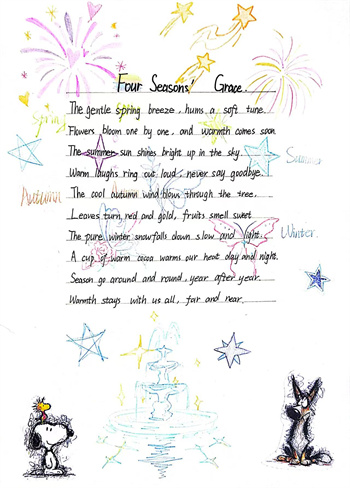 Four Seasons' Grace.
The gentle spring breeze, hums a soft tune.
Spring
Flowers bloom one by one, and warmth comes soon
The summer sun shines bright up in the sky.
Summer
Warm laughs ring out loud, never say goodbye
Autumn
The cool autumn wind blows through the tree.
Leaves turn red and gold, fruits smell sweet
The pure winter snowfalls down slow and light.
Winter
A cup of warm cocoa warms our heat day and night.
Season go around and round, year after year.
Warmth stays with us all, far and near.